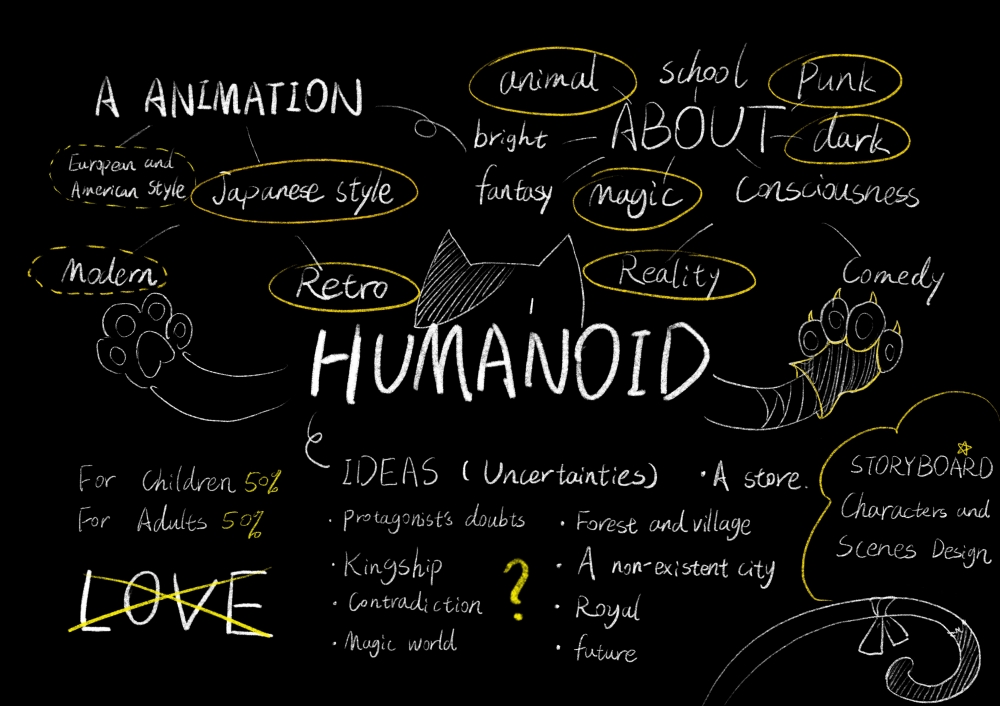 A ANIMATION
European and
American Style
Japanese style
Modern
Retro
animal
school
Punk
bright
ABOUT
dark
fantasy
magic
Consciousness
Reality
Comedy
HUMANOID
IDEAS (Uncertainties)
· A store.
· Protagonist's doubts
· Forest and village
· Kingship
· A non-existent city
· Contradiction
· Royal
· Magic world
· future
?
For Children 50%
For Adults 50%
LOVE
STORYBOARD
Characters and
Scenes Design